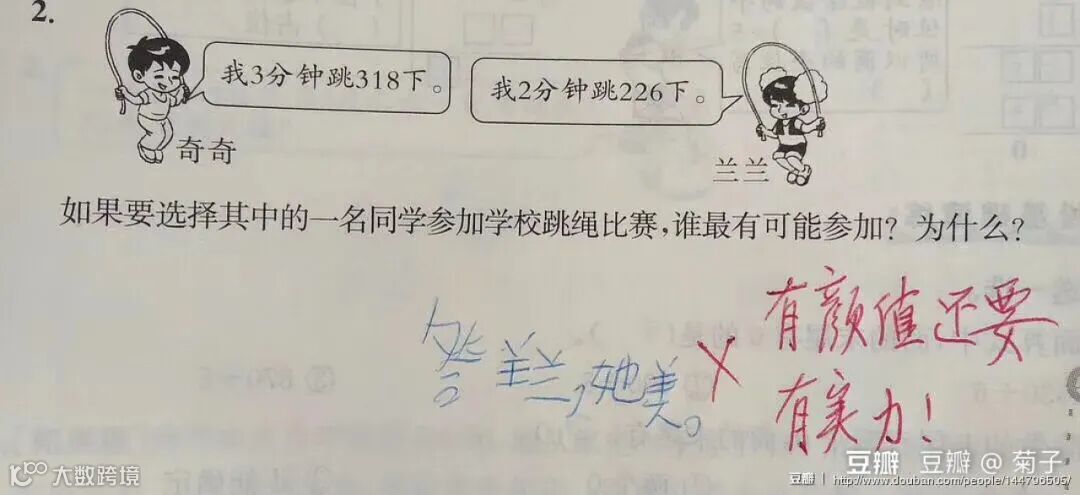 2.
我3分钟跳318下。
我2分钟跳226下。
奇奇
兰兰
如果要选择其中的一名同学参加学校跳绳比赛,谁最有可能参加?为什么?
答 兰兰,她美。
有颜值还要
有实力!
大数跨境
豆瓣 豆瓣@菊子
豆瓣 | http://www.douban.com/people/144796505/